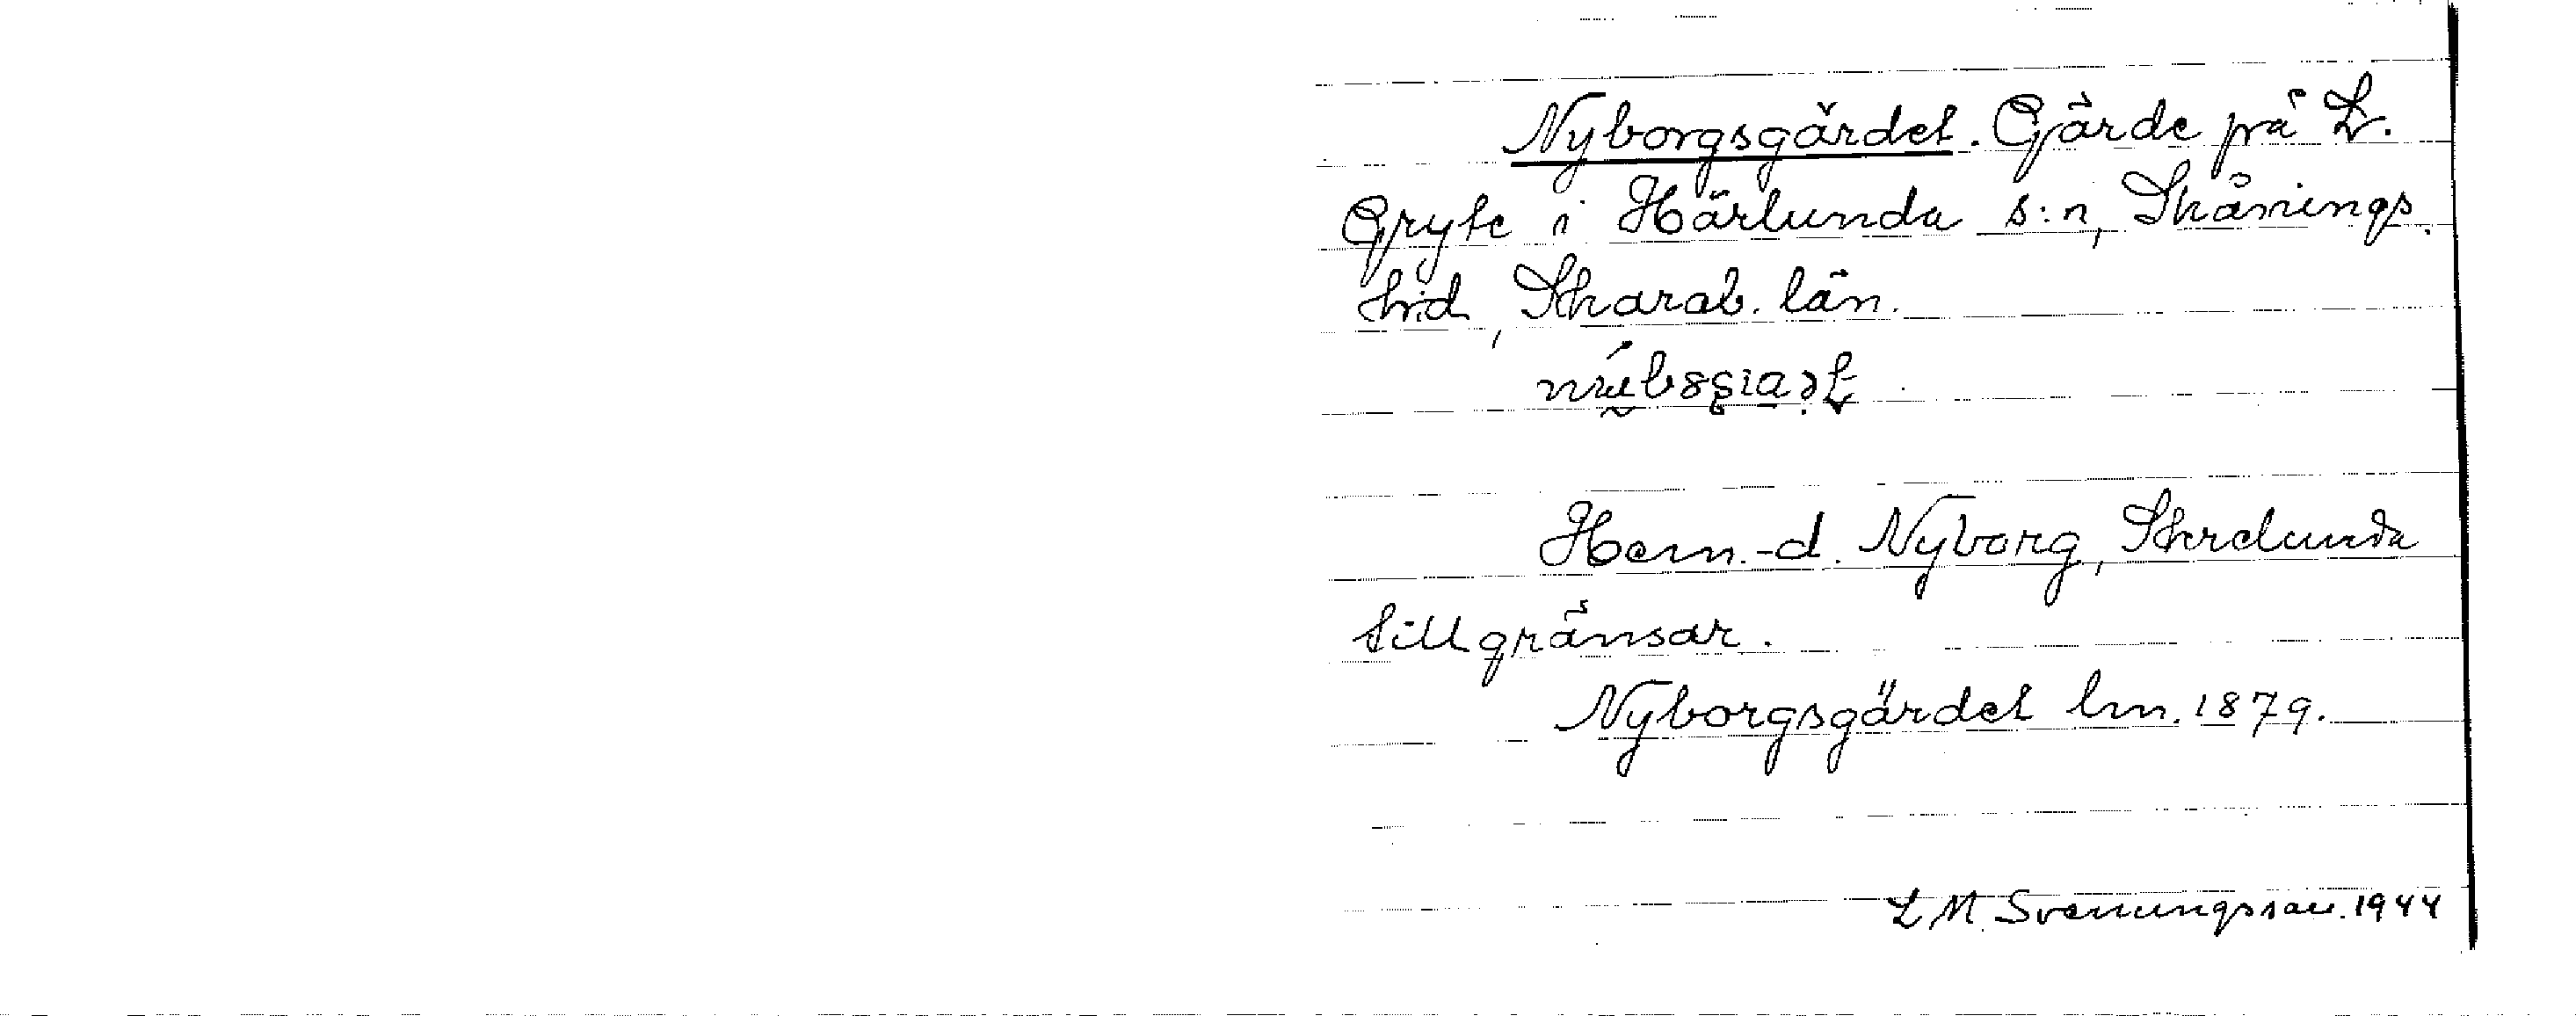 Nyborgsgärdet. Gärde på L.
Gryte i Härlunda s:n, Skånings
hrd, Skarab. län.
Hem.-d. Nyborg, Skrelunda
tillgränsar.
Nyborgsgärdet lm. 1879.
L M Svenungsson. 1944